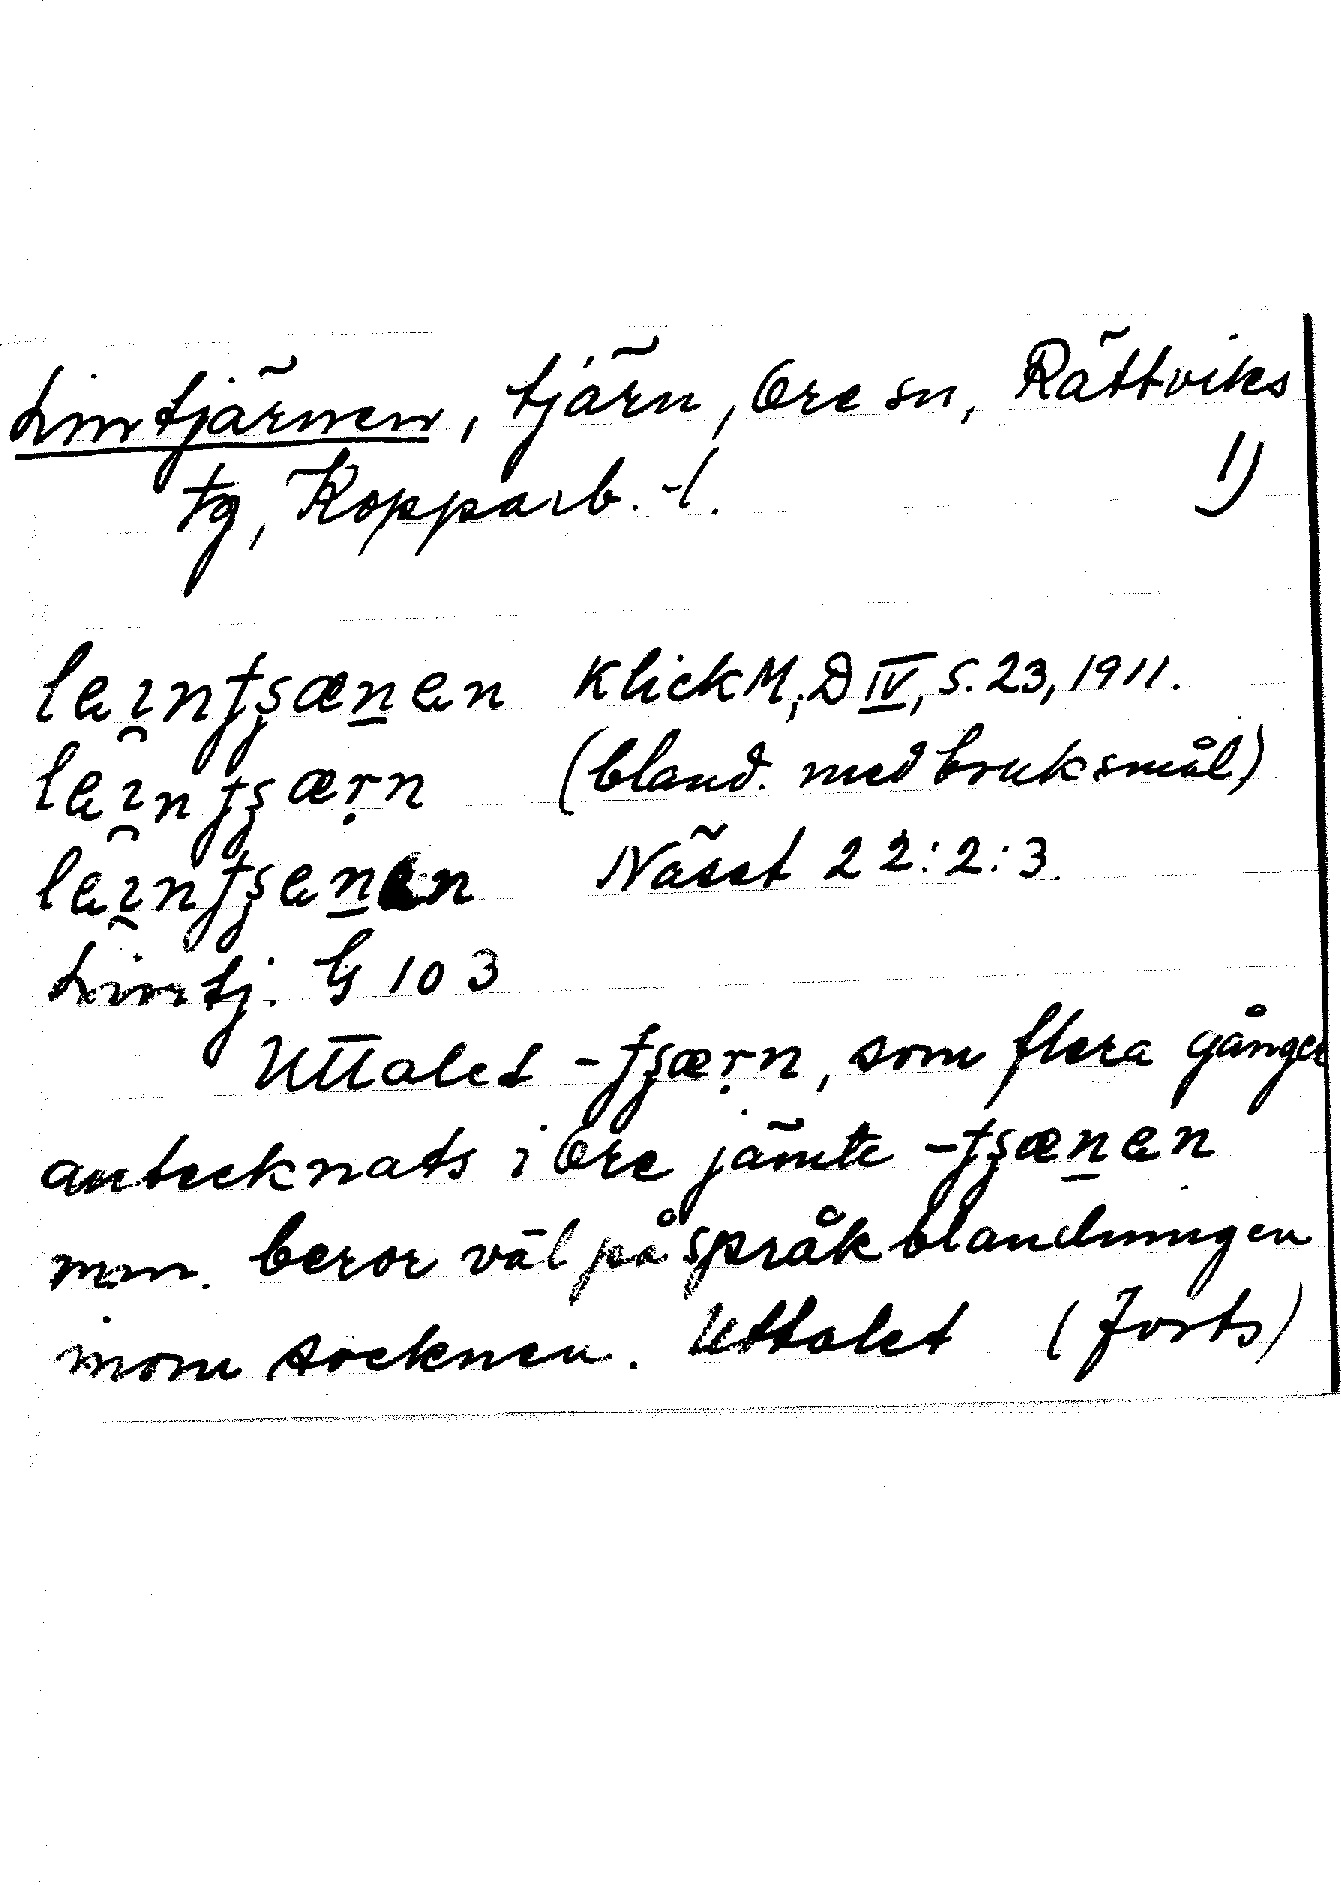 Lintjärnen, tjärn, Ore sn, Rättviks
tg, Kopparb. -l. 1)
laı̯nʈʂæn̲an KlickM, D IV, S. 23, 1911.
laı̯nʈʂæṛn (bland. med bruksmål)
laı̯nʈʂan̲an Näset 22:2:3.
Lintj. G 103
Uttalet -ʈʂæṛn, som flera gånger
antecknats i Ore jämte -ʈʂæn̲an
m.m. beror väl på språkblandningen
inom socknen. Uttalet (Forts)